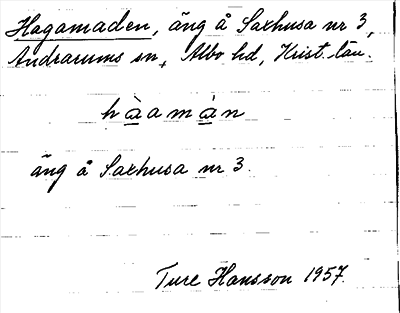 Hagamaden, äng å Saxhusa nr 3,
Andrarums sn, Albo hd, Krist. län.
hàamàn
äng å Saxhusa nr 3.
Ture Hansson 1957.